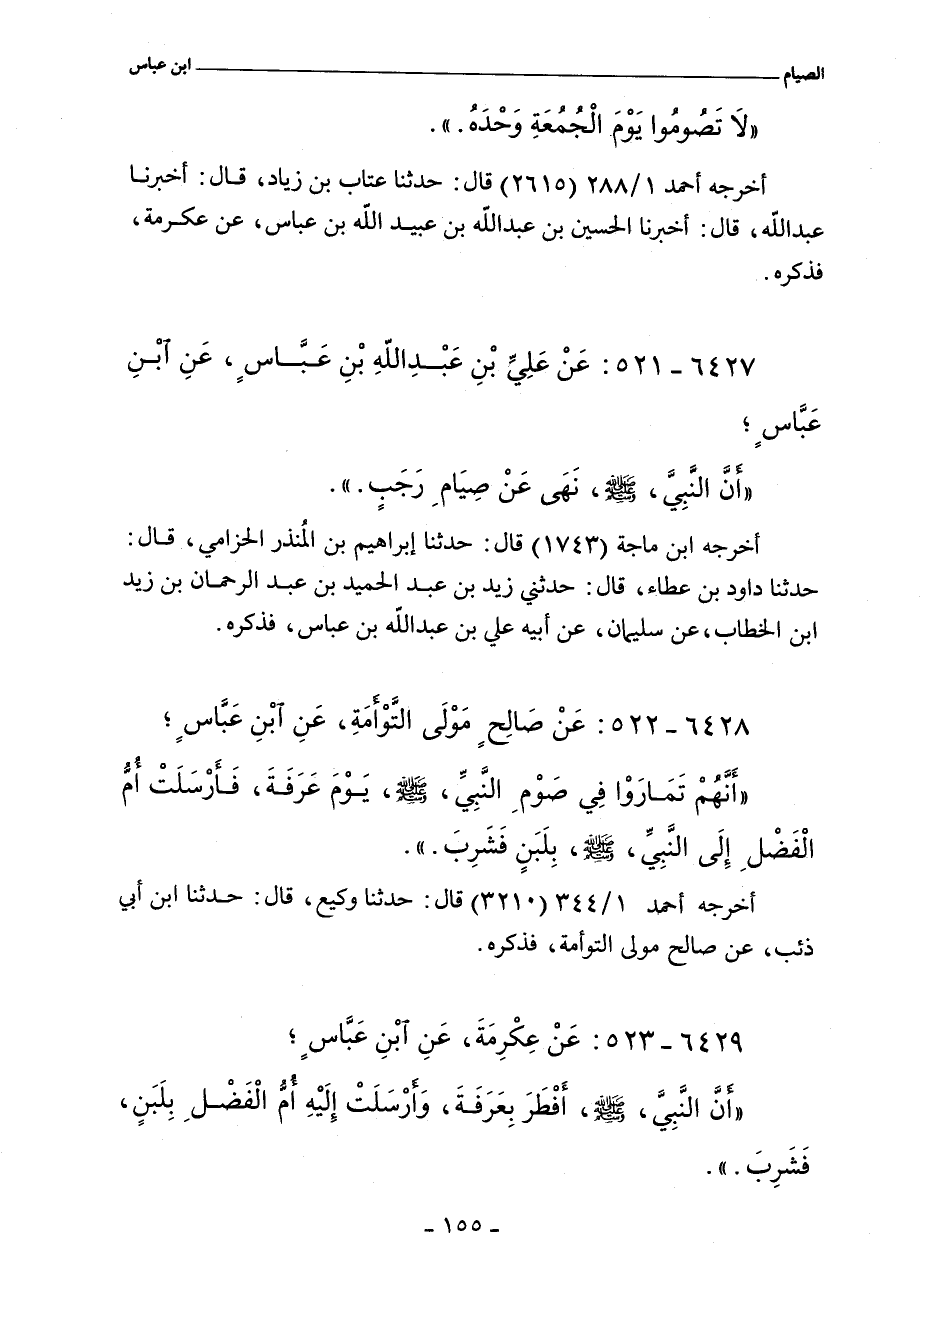 الصيام ــــــــــــــــــــ ابن عباس
«لَا تَصُومُوا يَوْمَ الْجُمُعَةِ وَحْدَهُ.».
أخرجه أحمد ٢٨٨/١ (٢٦١٥) قال: حدثنا عتاب بن زياد، قال: أخبرنا
عبدالله، قال: أخبرنا الحسين بن عبدالله بن عبيد الله بن عباس، عن عكرمة،
فذكره.
٦٤٢٧ - ٥٢١: عَنْ عَلِيِّ بْنِ عَبْدِاللّهِ بْنِ عَبَّاسٍ، عَنِ ٱبْنِ
عَبَّاسٍ؛
«أَنَّ النَّبِيَّ، ﷺ، نَهَى عَنْ صِيَامِ رَجَبٍ.».
أخرجه ابن ماجة (١٧٤٣) قال: حدثنا إبراهيم بن المُنذر الحزامي، قال:
حدثنا داود بن عطاء، قال: حدثني زيد بن عبد الحميد بن عبد الرحمان بن زيد
ابن الخطاب، عن سليمان، عن أبيه علي بن عبدالله بن عباس، فذكره.
٦٤٢٨ - ٥٢٢: عَنْ صَالِحٍ مَوْلَى التَّوْأَمَةِ، عَنِ ٱبْنِ عَبَّاسٍ؛
«أَنَّهُمْ تَمَارَوْا فِي صَوْمِ النَّبِيِّ، ﷺ، يَوْمَ عَرَفَةَ، فَأَرْسَلَتْ أُمُّ
الْفَضْلِ إِلَى النَّبِيِّ، ﷺ، بِلَبَنٍ فَشَرِبَ.».
أخرجه أحمد ٣٤٤/١ (٣٢١٠) قال: حدثنا وكيع، قال: حدثنا ابن أبي
ذئب، عن صالح مولى التوأمة، فذكره.
٦٤٢٩ - ٥٢٣: عَنْ عِكْرِمَةَ، عَنِ ٱبْنِ عَبَّاسٍ؛
«أَنَّ النَّبِيَّ، ﷺ، أَفْطَرَ بِعَرَفَةَ، وَأَرْسَلَتْ إِلَيْهِ أُمُّ الْفَضْلِ بِلَبَنٍ،
فَشَرِبَ.».
- ١٥٥ -